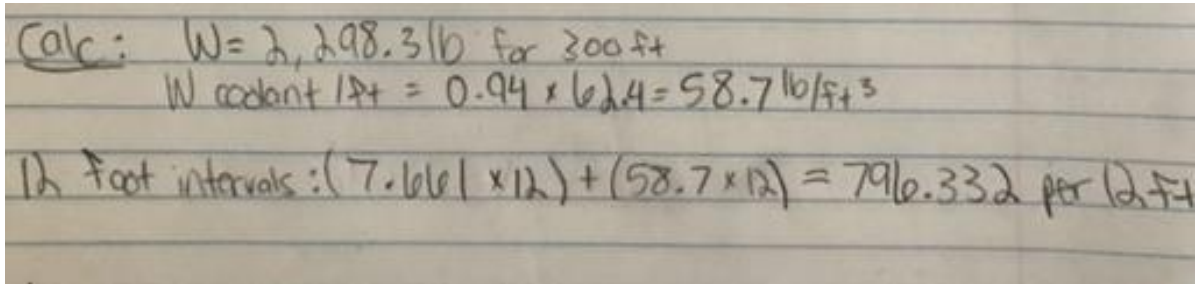 Calc: W= 2,298.3 lb for 300 ft
W coolant / ft = 0.94 x 62.4 = 58.7 lb/ft3
12 foot intervals: (7.661 x 12) + (58.7 x 12) = 796.332 per 12 ft